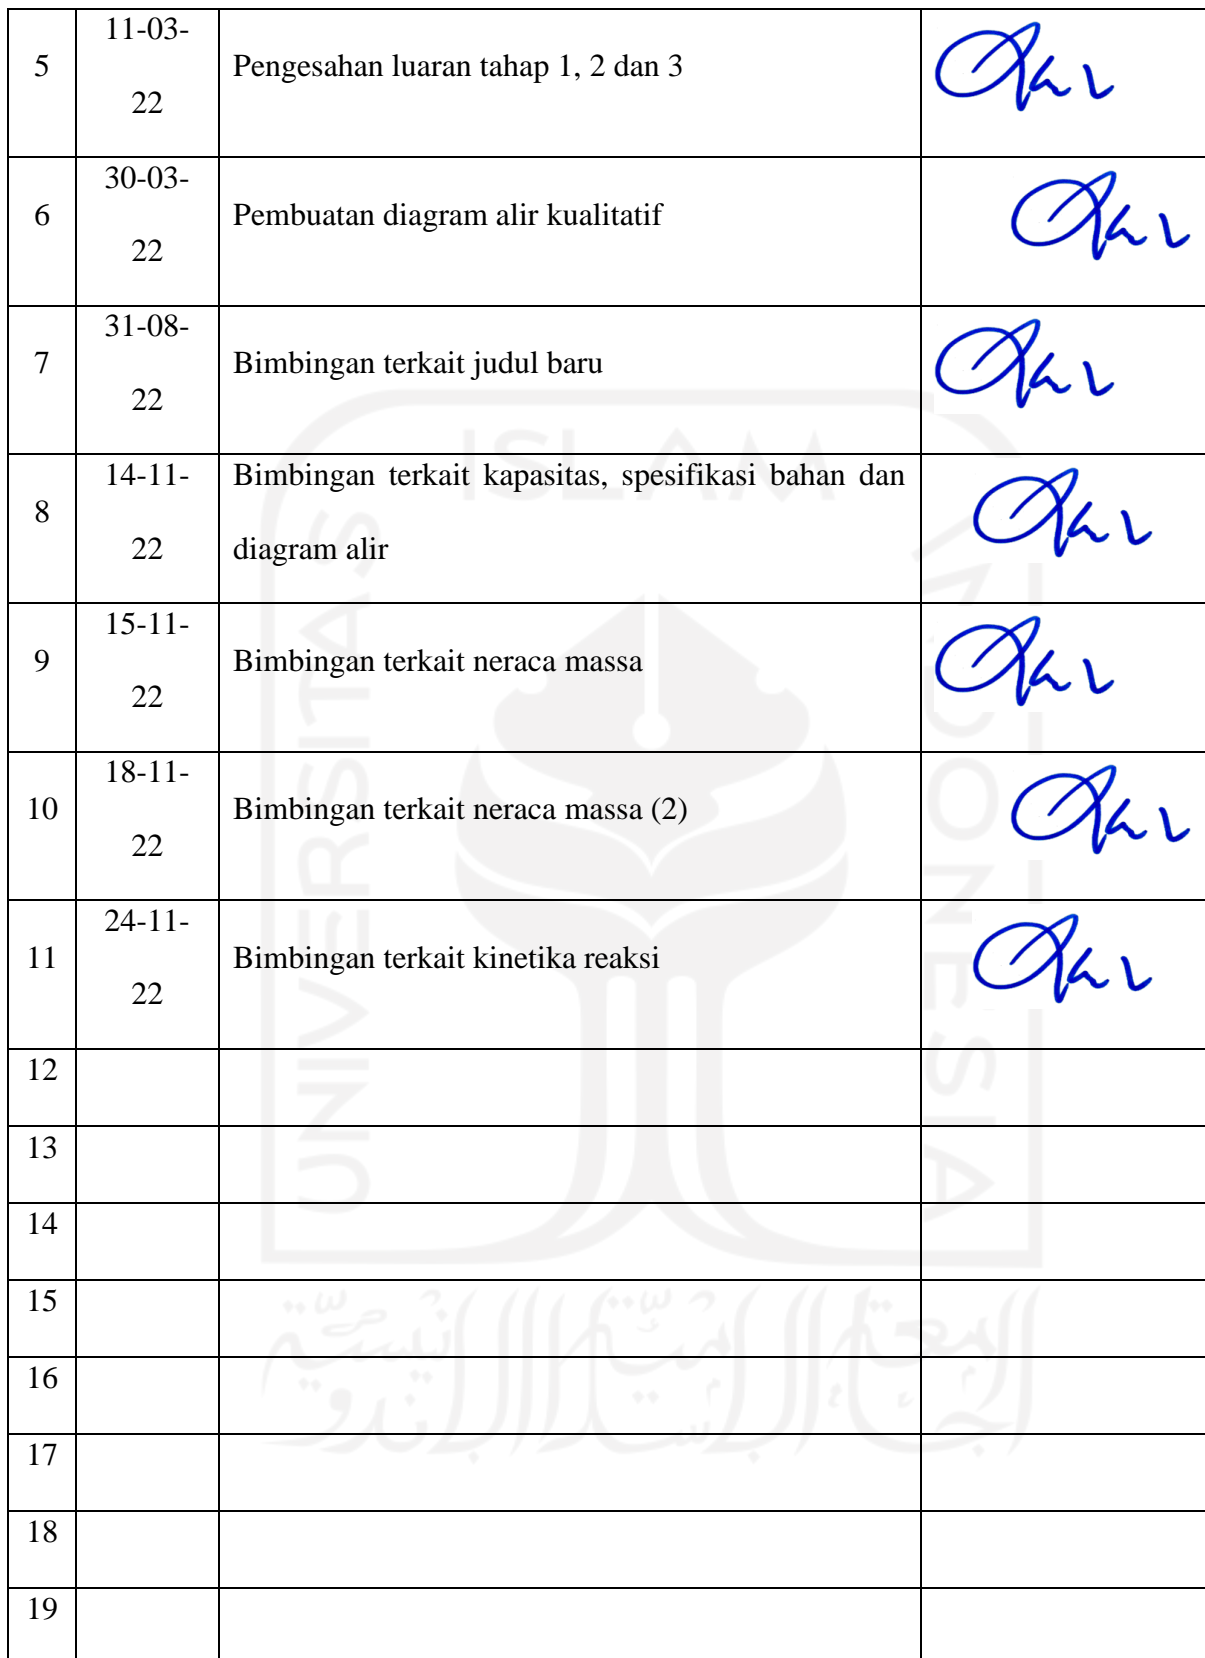 11-03-
5 Pengesahan luaran tahap 1, 2 dan 3
22
30-03-
6 Pembuatan diagram alir kualitatif
22
31-08-
7 Bimbingan terkait judul baru
22
14-11- Bimbingan terkait kapasitas, spesifikasi bahan dan
8
22 diagram alir
15-11-
9 Bimbingan terkait neraca massa
22
18-11-
10 Bimbingan terkait neraca massa (2)
22
24-11-
11 Bimbingan terkait kinetika reaksi
22
12
13
14
15
16
17
18
19
UNIVERSITAS
ISLAM
INDONESIA